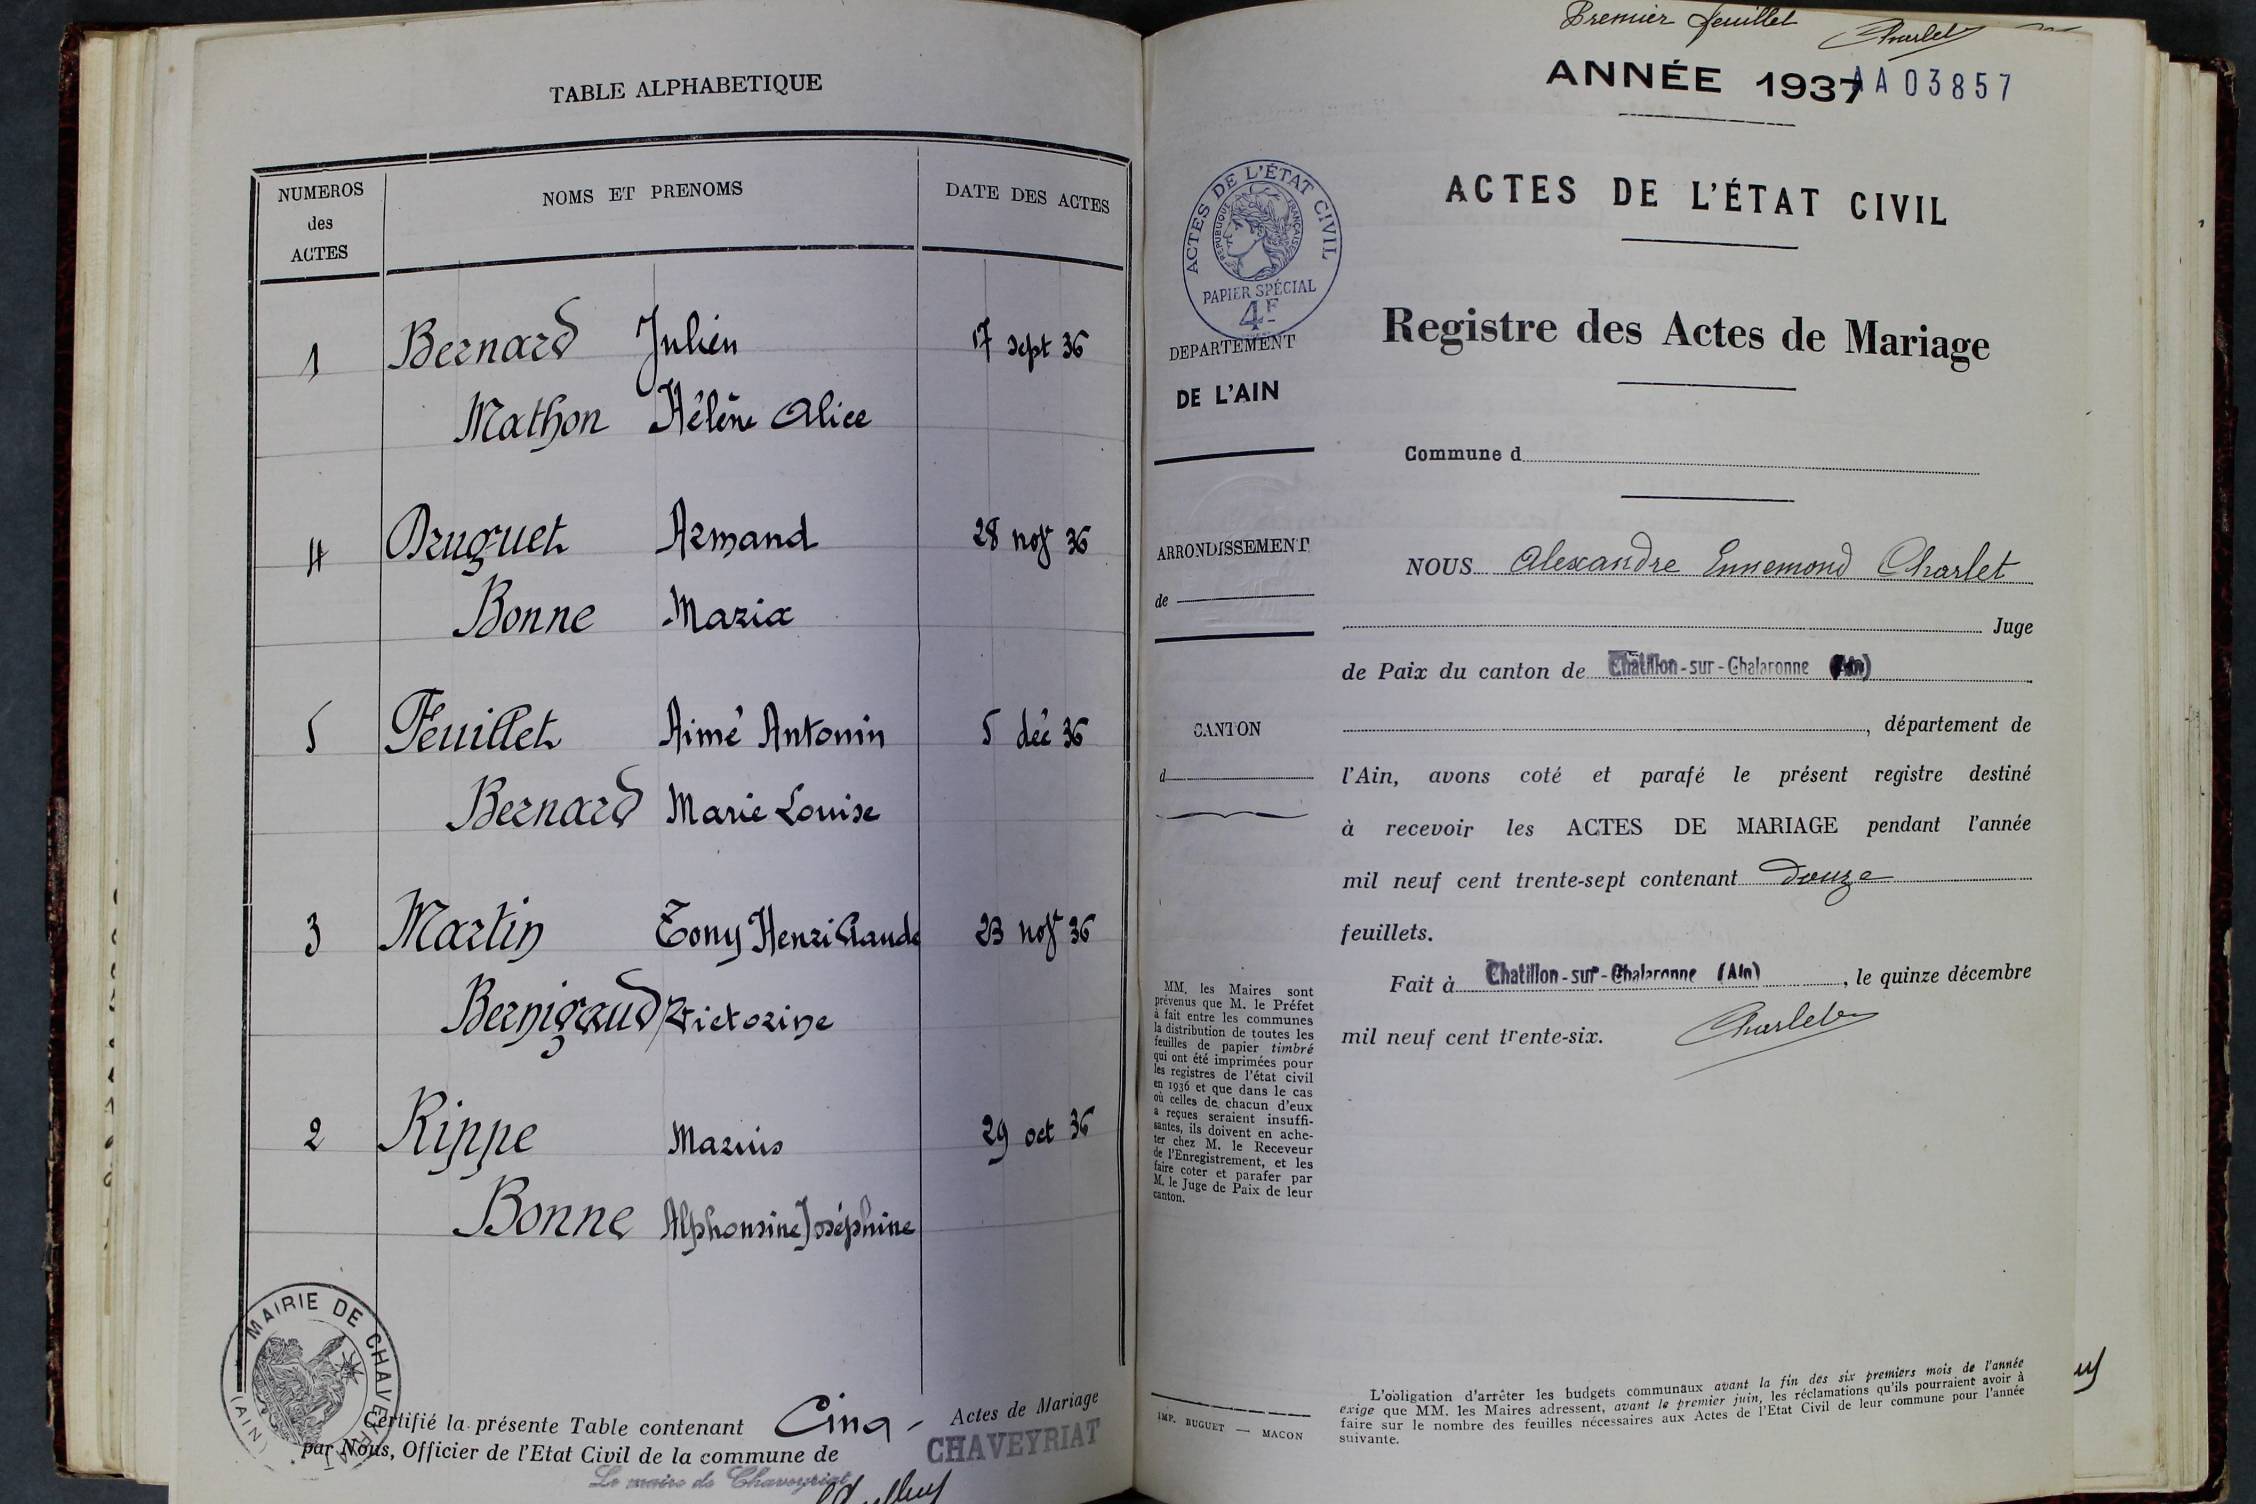 TABLE ALPHABETIQUE
NUMEROS des ACTES
NOMS ET PRENOMS
DATE DES ACTES
1 Bernard Julien 17 sept 36
Mathon Hélène Alice
4 Druguet Armand 28 nov 36
Bonne Maria
5 Feuillet Aimé Antonin 5 déc 36
Bernard Marie Louise
3 Martin Tony Henri Claude 23 nov 36
Bernigaud Victorine
2 Rippe Marius 29 oct 36
Bonne Alphonsine Joséphine
MAIRIE DE CHAVEYRIAT
(AIN)
Certifié la présente Table contenant Cinq Actes de Mariage
par Nous, Officier de l'Etat Civil de la commune de CHAVEYRIAT
Le maire de Chaveyriat
Premier feuillet Charlet
ANNÉE 1937
AA 03857
ACTES DE L'ÉTAT CIVIL
ACTES DE L'ÉTAT CIVIL
REPUBLIQUE FRANÇAISE
PAPIER SPÉCIAL
4F
Registre des Actes de Mariage
DEPARTEMENT
DE L'AIN
Commune d
ARRONDISSEMENT
de
CANTON
d
NOUS Alexandre Ennemond Charlet
Juge
de Paix du canton de Chatillon-sur-Chalaronne (Ain)
, département de
l'Ain, avons coté et parafé le présent registre destiné
à recevoir les ACTES DE MARIAGE pendant l'année
mil neuf cent trente-sept contenant douze
feuillets.
Fait à Chatillon-sur-Chalaronne (Ain), le quinze décembre
mil neuf cent trente-six. Charlet
MM. les Maires sont
prévenus que M. le Préfet
à fait entre les communes
la distribution de toutes les
feuilles de papier timbré
qui ont été imprimées pour
les registres de l'état civil
en 1936 et que dans le cas
où celles de chacun d'eux
a reçues seraient insuffi-
santes, ils doivent en ache-
ter chez M. le Receveur
de l'Enregistrement, et les
faire coter et parafer par
M. le Juge de Paix de leur
canton.
IMP. BUGUET — MACON
L'obligation d'arrêter les budgets communaux avant la fin des six premiers mois de l'année
exige que MM. les Maires adressent, avant le premier juin, les réclamations qu'ils pourraient avoir à
faire sur le nombre des feuilles nécessaires aux Actes de l'Etat Civil de leur commune pour l'année
suivante.